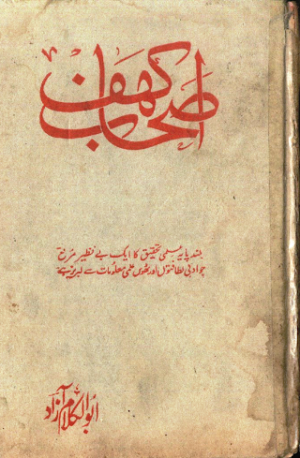 اصحاب کہف
بلند پایہ علمی تحقیق کا ایک بے نظیر مرقع
جو ادبی لطافتوں اور ٹھوس علمی معلومات سے لبریز ہے
ابوالکلام آزاد